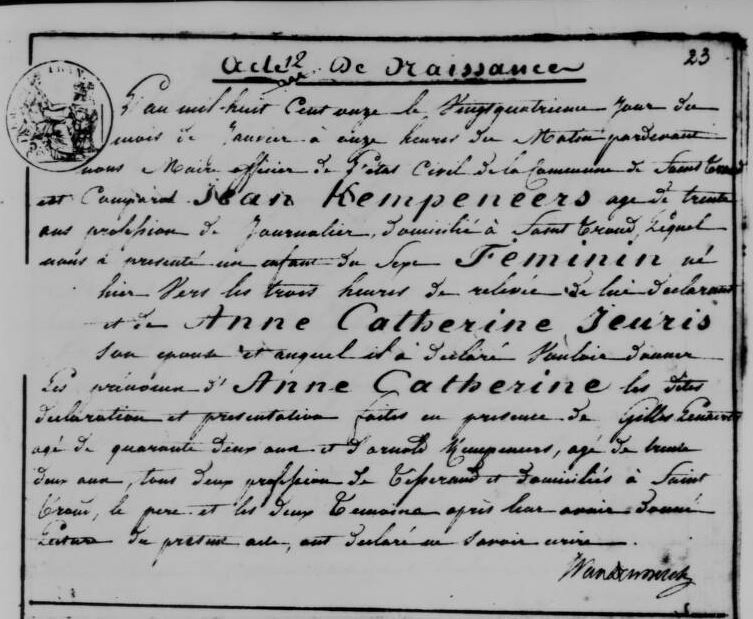 Acte 12 De Naissance 23
L'an mil huit Cent onze le Vingtquatrieme Jour du
mois de Janvier à onze heures du Matin pardevant
nous Maire officier de l'état Civil de la Commune de Saint Trond
est Comparu Jean Kempeneers age de trente
ans profession de Journalier, domicilié à Saint Trond, lequel
nous à presenté un enfant du Sexe Féminin né
hier vers les trois heures de relevée de lui declarant
et de Anne Catherine Jeuris
son epouse et auquel il à declaré Vouloir donner
Les prénoms d'Anne Catherine les dites
declaration et presentation faites en presence de Gilles
agé de quarante deux ans et d'arnold Kempeneers, agé de trente
deux ans, tous deux profession de Tisserand et domiciliés à Saint
Trond, le pere et les deux Temoins après leur avoir donné
Lecture du présent acte, ont declaré ne savoir ecrire.